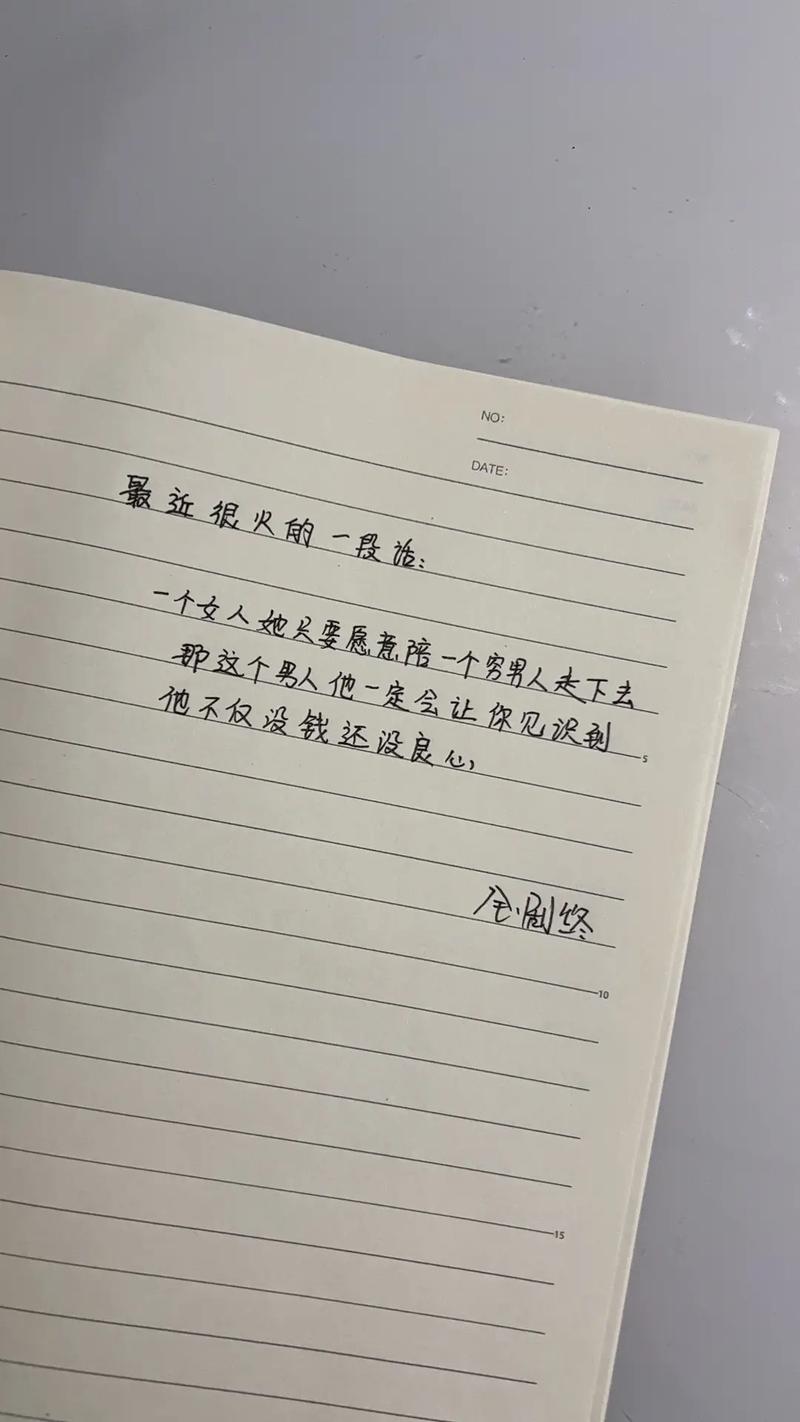 NO:
DATE:
最近很火的一段话:
一个女人她只要愿意陪一个穷男人走下去
那这个男人他一定会让你见识到
他不仅没钱还没良心
5
全剧终
10
15